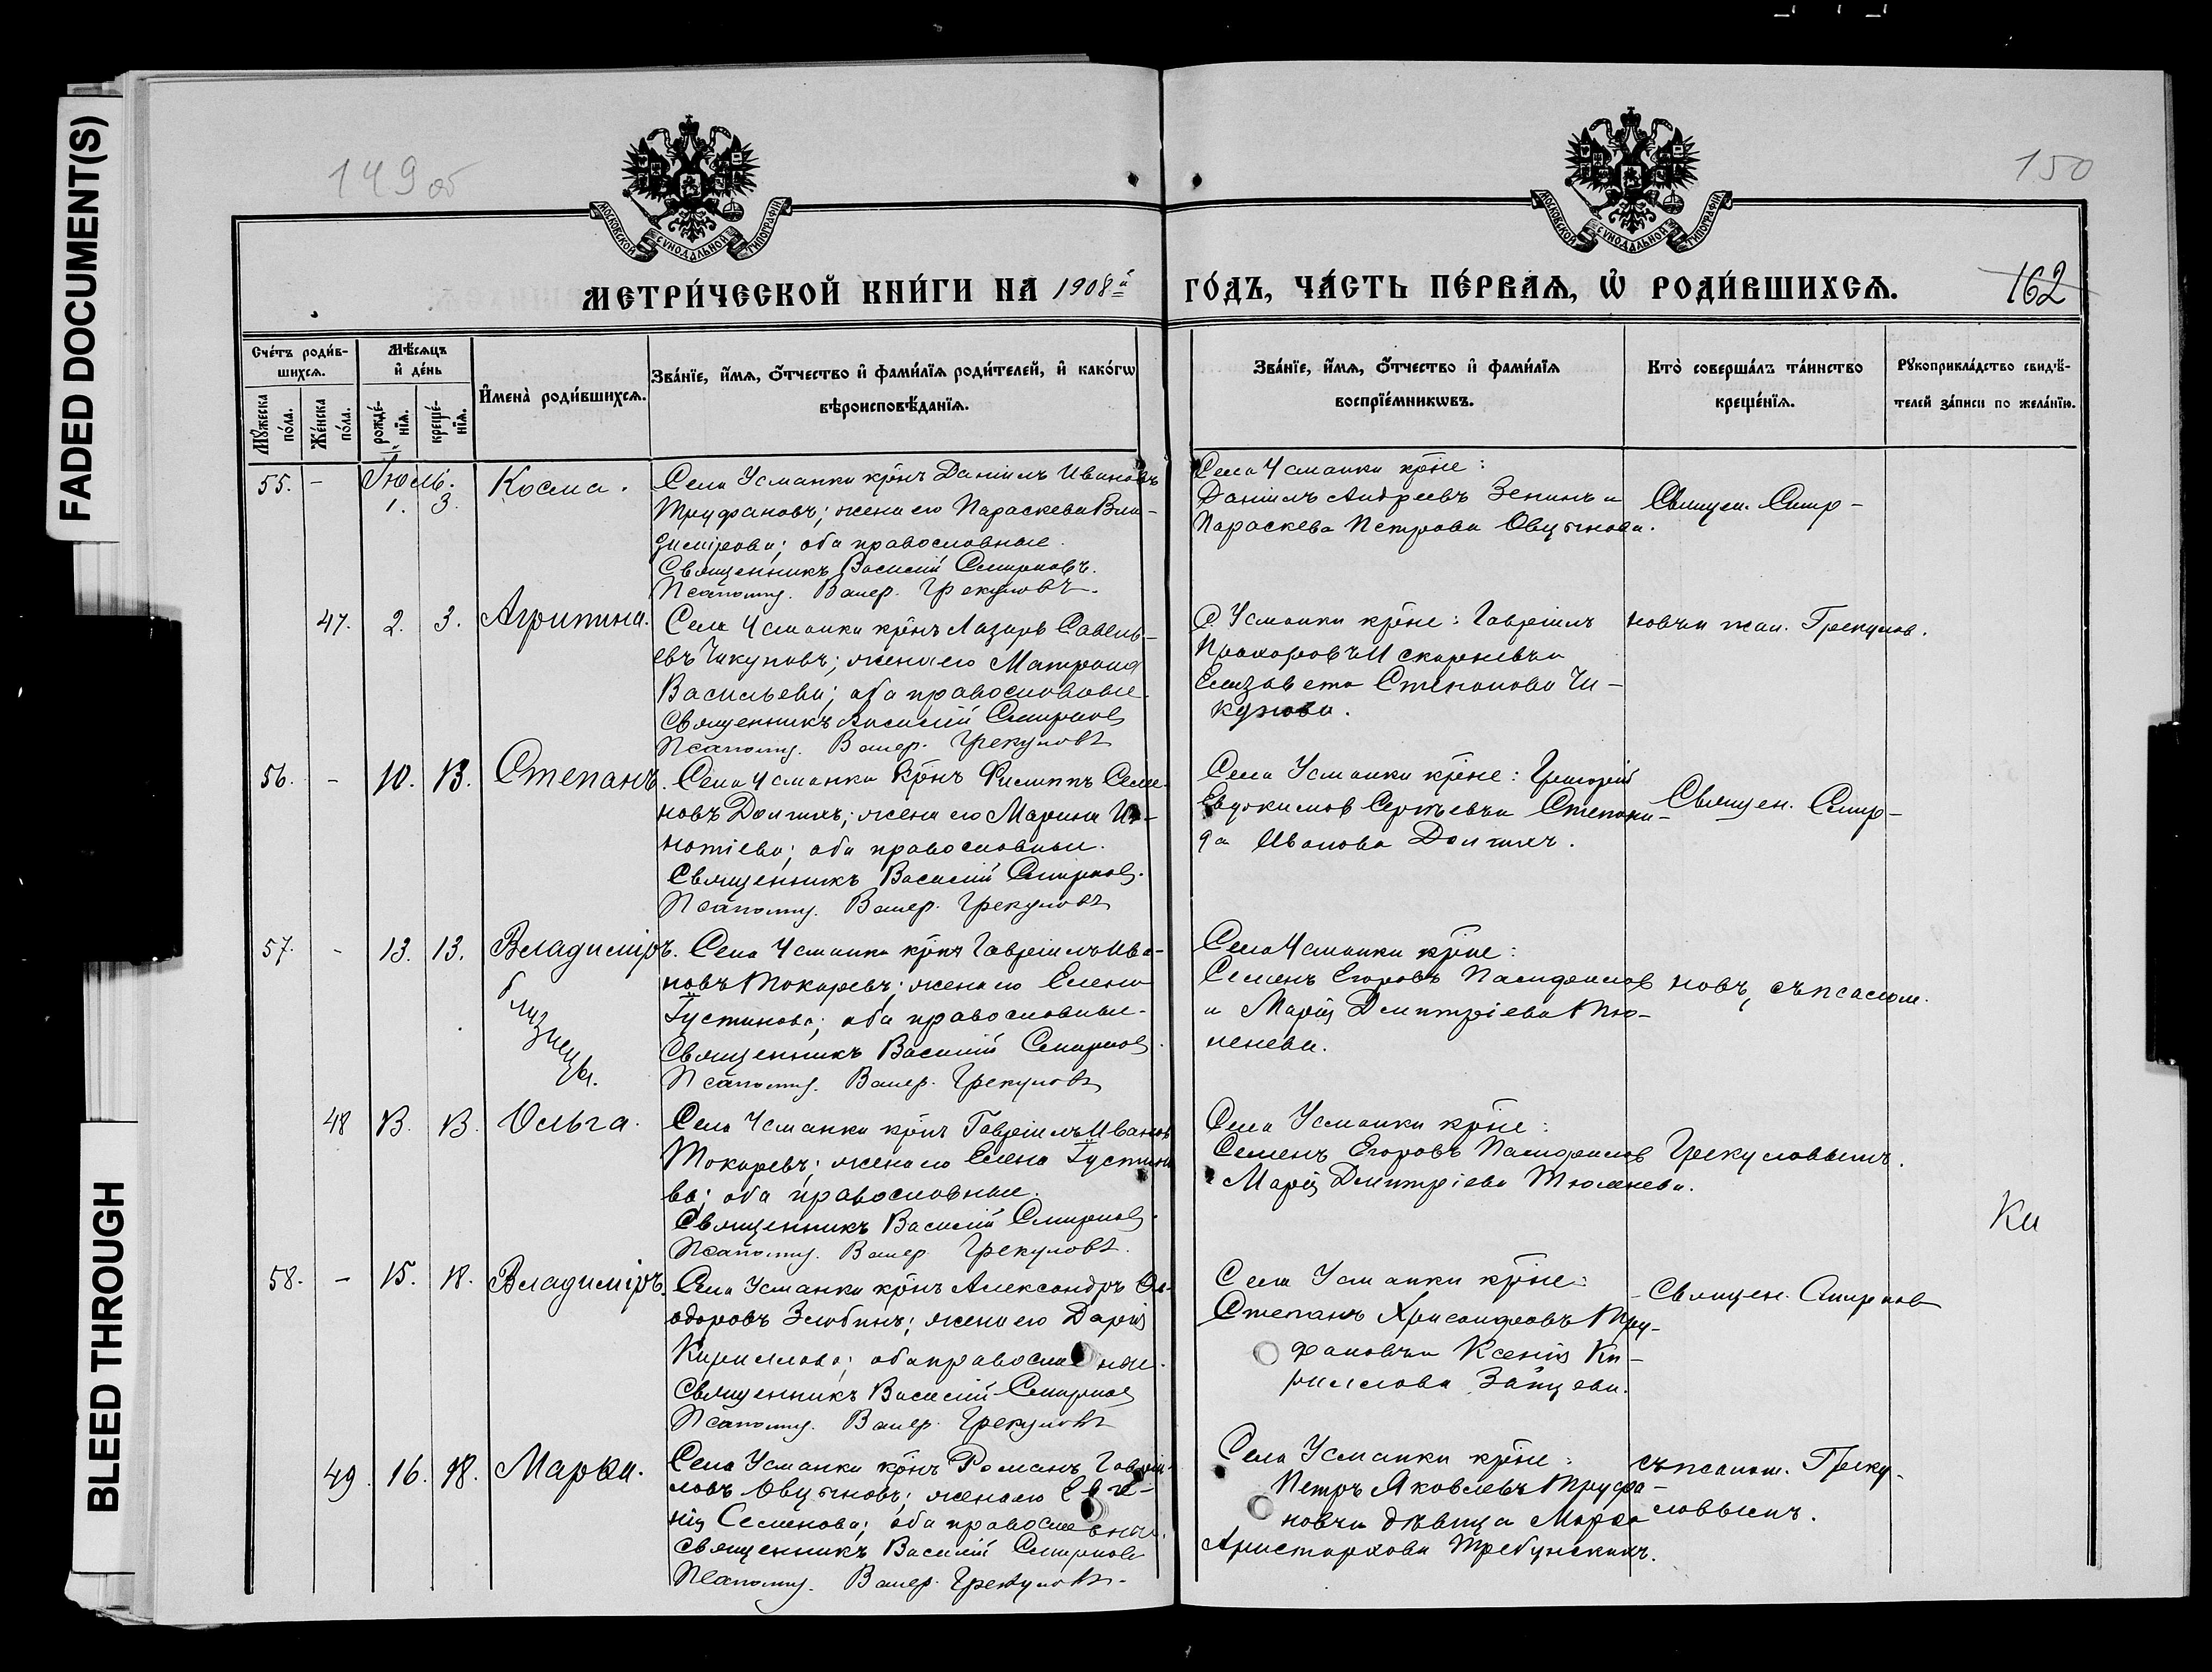 FADED DOCUMENT(S)
BLEED THROUGH
149 об
150
МОСКОВСКОЙ СѴНОДАЛЬНОЙ ТИПОГРАФІИ
МОСКОВСКОЙ СѴНОДАЛЬНОЙ ТИПОГРАФІИ
МЕТРИ́ЧЕСКОЙ КНИ́ГИ НА 1908й ГО́ДЪ, ЧА́СТЬ ПЕ́РВАѦ, Ѡ҆ РОДИ́ВШИХСѦ.
162
Сче́тъ роди́в-
шихсѧ.
Мꙋ́жеска
по́ла.
Же́нска
по́ла.
Мѣ́сѧцъ
и҆ де́нь
рожде́-
нїѧ.
креще́-
нїѧ.
И҆мена̀ роди́вшихсѧ.
Зва́нїе, и҆́мѧ, ѻ҆́тчество и҆ фами́лїѧ роди́телей, и҆ како́гѡ
вѣроисповѣ́данїѧ.
Зва́нїе, и҆́мѧ, ѻ҆́тчество и҆ фами́лїѧ
воспрїе́мникѡвъ.
Кто̀ соверша́лъ та́инство
креще́нїѧ.
Рꙋкоприкла́дство свидѣ́-
телей за́писи по жела́нїю.
55. - Іюль.
1. 3. Косма.
Села Усманки крнъ Даніилъ Ивановъ
Труфановъ; жена его Параскева Вла-
димірова; оба православные.
Священникъ Василій Смирновъ.
Псаломщ. Валер. Грекуловъ.
Села Усманки кріне:
Даніилъ Андреевъ Зенинъ и
Параскева Петрова Овцынова.
Священ. Смир-
47. 2. 3. Агрипина.
Села Усманки крнъ Лазарь Савель-
евъ Чикуновъ; жена его Матрона
Васильева; оба православные.
Священникъ Василій Смирновъ
Псаломщ. Валер. Грекуловъ
С. Усманки кріне: Гавріилъ
Прохоровъ Искорневъ и
Елизавета Степанова Чи-
кунова.
новъ и псал. Грекулов.
56. - 10. 13. Степанъ.
Села Усманки крнъ Филиппъ Семе-
новъ Долгихъ; жена его Марина Иг-
натіева; оба православные.
Священникъ Василій Смирновъ.
Псаломщ. Валер. Грекуловъ
Села Усманки кріне: Григорій
Евдокимов Сергѣевъ и Степани-
да Иванова Долгихъ.
Священ. Смир-
57. - 13. 13. Владиміръ.
близнецы.
Села Усманки крнъ Гавріилъ Ива-
новъ Токаревъ; жена его Елена
Іустинова; оба православные.
Священникъ Василій Смирновъ.
Псаломщ. Валер. Грекуловъ
Села Усманки кріне:
Семенъ Егоровъ Памфилов
и Марія Дмитріева Тю-
менева.
новъ, съ псалом.
48 13. 13. Ольга.
Села Усманки крнъ Гавріилъ Иванов
Токаревъ; жена его Елена Іустино
ва; оба православные.
Священникъ Василій Смирновъ.
Псаломщ. Валер. Грекуловъ.
Села Усманки кріне:
Семенъ Егоровъ Памфилов
Марія Дмитріева Тюменева.
Грекуловымъ.
Ки
58. - 15. 18. Владиміръ.
Села Усманки крнъ Александръ Ѳе-
одоровъ Злобинъ; жена его Дарія
Кириллова; оба православные.
Священникъ Василій Смирнов
Псаломщ. Валер. Грекуловъ
Села Усманки кріне:
Степанъ Хрисанфовъ Тру-
фановъ и Ксенія Ки-
риллова Зайцева.
Священ. Смирнов
49. 16. 18. Марѳа.
Села Усманки крнъ Романъ Гаврии-
ловъ Овцыновъ; жена его Евге-
нія Семенова; оба православные.
Священникъ Василій Смирновъ
Псаломщ. Валер. Грекуловъ.
Села Усманки кріне:
Петръ Яковлевъ Труфа-
новъ и дѣвица Марѳа
Аристархова Требунскихъ.
съ псалом. Греку-
ловымъ.